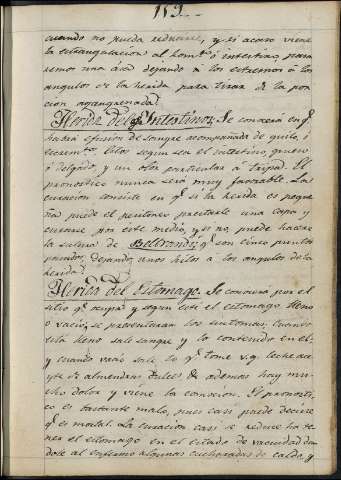 159.
cuando no pueda reducirse, y si acaso viene
la estrangulacion al hom.to ó intestino, para
remos una ása dejando á los estremos ó los
angulos de la herida para tirar de la por
cion agangrenada.
Herida del Intestino. Se conocerá en q.e
habrá efusion de sangre acompañada de quilo, ó
escrem.tos, estos segun sea el intestino, grueso
ó delgado, y un olor particular á tripas. El
pronostico nunca será muy favorable. La
curacion consiste en q.e si la herida es peque
ña puede el peritoneo prestarle una capa y
curarse por este medio, y si no, puede hacerse
la sutura de Beltrandi, q.e son cinco puntos
pasados, dejando unos hilos á los angulos de la
herida.
Herida del Estomago. Se conocerá por el
sitio q.e ocupa y segun esté el estomago lleno
ó vacio, se presentaran los sintomas. Cuando
está lleno sale sangre y lo contenido en el;
y cuando vacio sale lo q.e tome v.g. leche acey
te de almendras dulces &. ademas hay mu
cho dolor y viene la conocion. El pronosti
co es bastante malo, pues casi puede decirse
q.e es mortal. La curacion casi se reduce ha te
ner el estomago en el estado de vacuidad dan
dole al enfermo algunas cucharadas de caldo, y